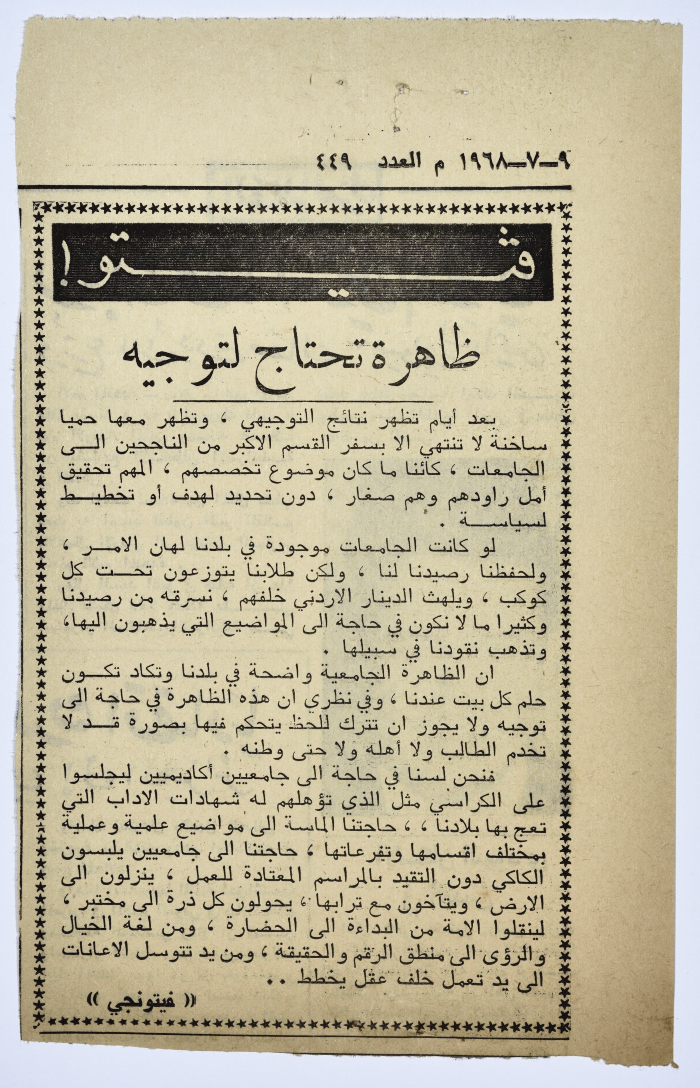 ٩ــ٧ــ١٩٦٨ م العدد ٤٤٩
ڤيتو !
ظاهرة تحتاج لتوجيه
بعد أيام تظهر نتائج التوجيهي ، وتظهر معها حميا
ساخنة لا تنتهي الا بسفر القسم الاكبر من الناجحين الــى
الجامعات ، كائنا ما كان موضوع تخصصهم ، المهم تحقيق
أمل راودهم وهم صغار ، دون تحديد لهدف أو تخطيــط
لسياســة .
لو كانت الجامعات موجودة في بلدنا لهان الامــر ،
ولحفظنا رصيدنا لنا ، ولكن طلابنا يتوزعون تحــت كل
كوكب ، ويلهث الدينار الاردني خلفهم ، نسرقه من رصيدنا
وكثيرا ما لا نكون في حاجة الى المواضيع التي يذهبون اليها،
وتذهب نقودنا في سبيلها .
ان الظاهرة الجامعية واضحة في بلدنا وتكاد تكــون
حلم كل بيت عندنا ، وفي نظري ان هذه الظاهرة في حاجة الى
توجيه ولا يجوز ان تترك للحظ يتحكم فيها بصورة قــد لا
تخدم الطالب ولا أهله ولا حتى وطنه .
فنحن لسنا في حاجة الى جامعيين أكاديميين ليجلسوا
على الكراسي مثل الذي تؤهلهم له شهادات الاداب التي
تعج بها بلادنا ، ، حاجتنا الماسة الى مواضيع علمية وعملية
بمختلف اقسامها وتفرعاتها ، حاجتنا الى جامعيين يلبسون
الكاكي دون التقيد بالمراسم المعتادة للعمل ، ينزلون الى
الارض ، ويتآخون مع ترابها ، يحولون كل ذرة الى مختبر ،
لينقلوا الامة من البداءة الى الحضارة ، ومن لغة الخيال
والرؤى الى منطق الرقم والحقيقة ، ومن يد تتوسل الاعانات
الى يد تعمل خلف عقل يخطط . .
(( فيتونجي ))